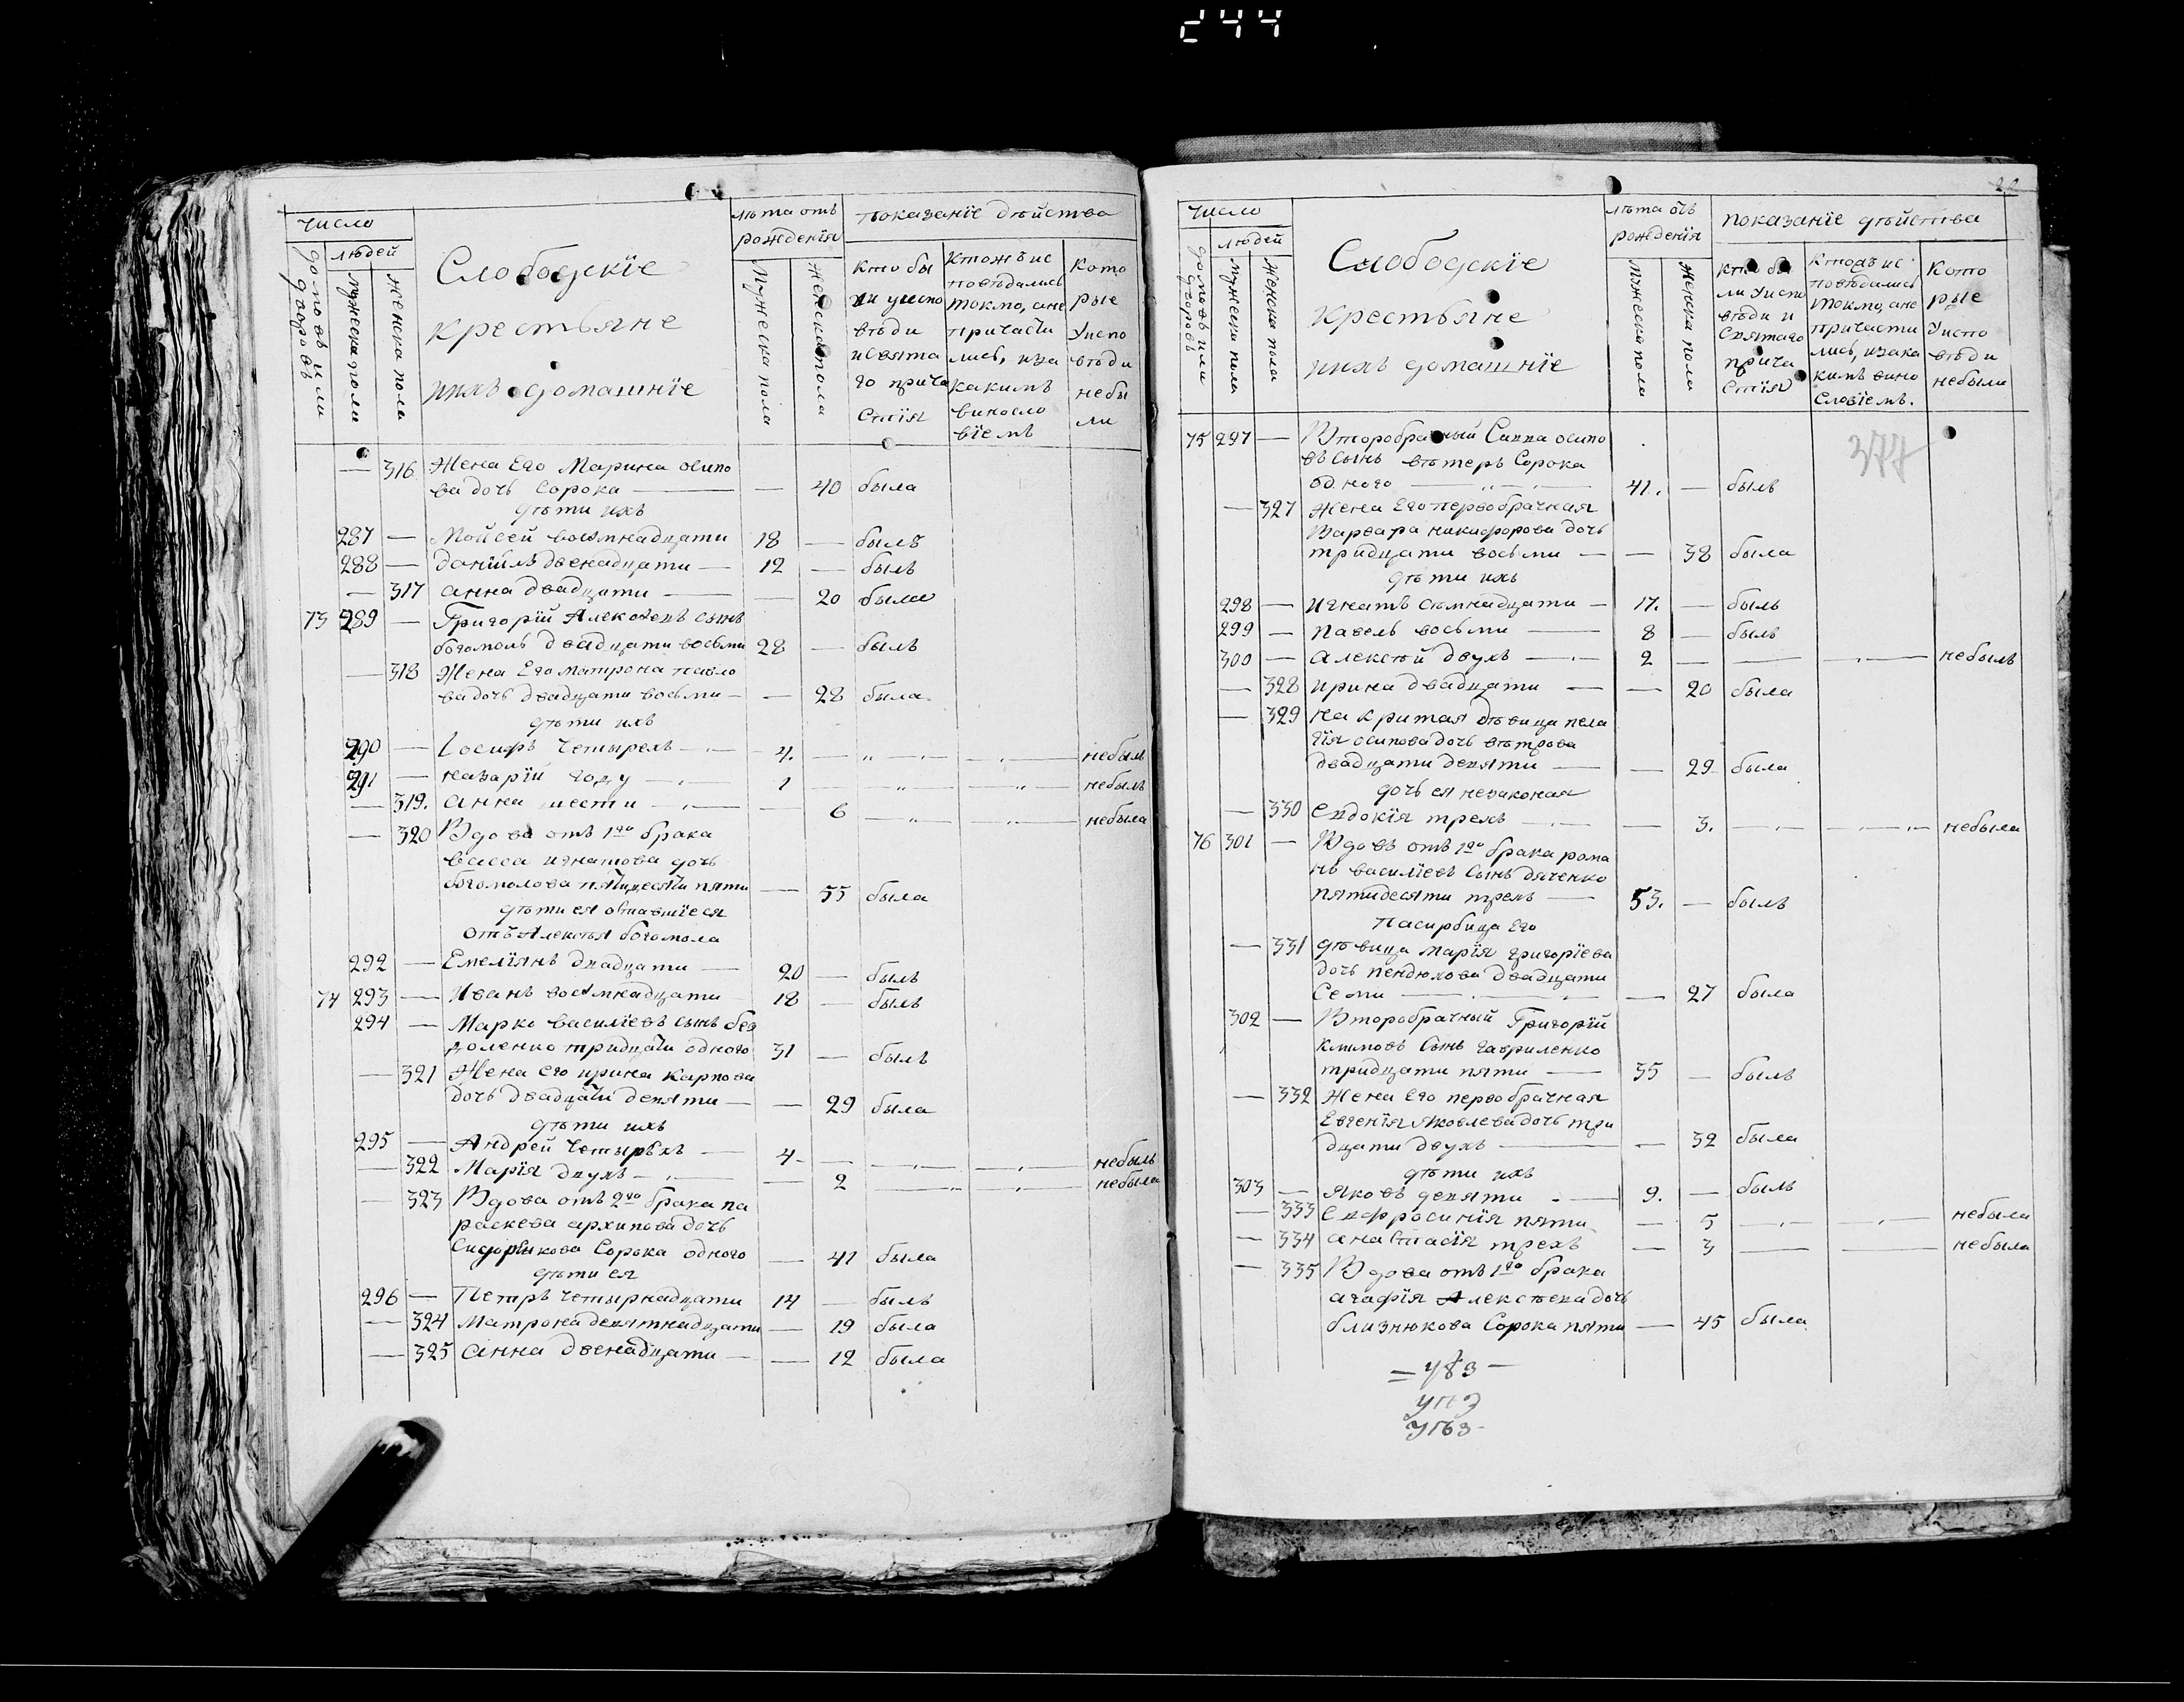 244
число
людей
домовъ или дворовъ
мужеска пола
женска пола
Слободскїе
крестьяне
ихъ домашнїе
лѣта отъ
рожденїя
мужеска пола
женска пола
показанїе дѣйства
кто бы
ли уиспо
вѣди
исвята
го прича
стїя
ктожъ ис
повѣдались
токмо, ане
причасти
лись, иза
какимъ
винослο
вїемъ
Кото
рые
уиспо
вѣди
небы
ли
— 316 Жена Его Марина осипо
ва дочь сорока — — 40 была
дѣти ихъ
287 — Мойсей восѣмнадцати 18 — былъ
288 — данїилъ двенадцати — 12 — былъ
— 317 анна двадцати — — 20 была
73 289 — Григорїй Алексѣевъ сынъ
богомолъ двадцати восьми 28 — былъ
— 318 Жена Его матрона павло
ва дочь двадцати восьми — — 28 была
дѣти ихъ
290 — Іосифъ четырехъ — 4. — — — небылъ
291 — назарїй году — 1 — — небылъ
— 319. анна шести — — 6 — — небыла
— 320 Вдова отъ 1го брака
васса игнатова дочь
богомолова пятидесяти пяти — 55 была
дѣти ея оставшїеся
отъ Алексѣя богомола
292 — Емелїянъ двадцати — 20 — былъ
74 293 — Иванъ восѣмнадцати 18 — былъ
294 — Марко василїевъ сынъ без
доленко тридцати одного 31 — былъ
— 321 Жена его ирина карпова
дочь двадцати девяти — — 29 была
дѣти ихъ
295 — Андрей четырѣхъ — 4. — — — небылъ
— 322 Марїя двухъ — — 2 — — небыла
— 323 Вдова отъ 2го брака па
раскева архипова дочь
Сорока одного — 41 была
дѣти ея
296 — Петръ четырнадцати 14 — былъ
— 324 матрона девятнадцати — 19 была
— 325 анна двенадцати — — 12 была
число
людей
домовъ или дворовъ
мужеска пола
женска пола
Слободскїе
крестьяне
ихъ домашнїе
лѣта отъ
рожденїя
мужеска пола
женска пола
показанїе дѣйства
кто бы
ли уиспо
вѣди и
святаго
прича
стїя
ктожъ ис
повѣдались
токмо, ане
причасти
лись, изака
кимъ вино
словїемъ.
Кото
рые
уиспо
вѣди
небыли
377
75 297 — Второбрачный Савва осипо
въ сынъ вѣтеръ Сорока
одного — 41. — былъ
— 327 Жена Его первобрачная
Варвара никифорова дочь
тридцати восьми — — 38 была
дѣти ихъ
298 — Игнатъ сѣмнадцати — 17. — былъ
299 — Павелъ восьми — 8 — былъ
300 — алексѣй двухъ — 2 — — — небылъ
— 328 ирина двадцати — — 20 была
— 329 на критая дѣвица пела
гїя осипова дочь вѣтрова
двадцати девяти — — 29 была
дочь ея незаконая
— 330 Евдокїя трехъ — — 3. — — небыла
76 301 — Вдовъ отъ 1го брака рома
нъ василїевъ сынъ дяченко
пятидесяти трехъ — 53. — былъ
Пасирбица Его
— 331 дѣвица марїя григорїева
дочь пендюхова двадцати
Семи — — 27 была
302 — Второбрачный Григорїй
климовъ сынъ гавриленко
тридцати пяти — 35 — былъ
— 332 Жена Его первобрачная
Евгенїя яковлева дочь три
дцати двухъ — — 32 была
дѣти ихъ
303 — яковъ девяти — 9. — былъ
— 333 Евфросинїя пяти — 5 — — небыла
— 334 анастасїя трехъ — 3 — — небыла
— 335 Вдова отъ 1го брака
агафїя Алексѣева дочь
близнюкова Сорока пяти — 45 была